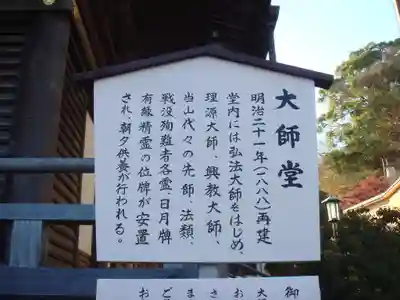 大師堂
明治二十一年(一八八八)再建
堂内には弘法大師をはじめ、
理源大師、興教大師、
当山代々の先師、法類、
戦没殉難者各霊、日月牌
有縁精霊の位牌が安置
され、朝夕供養が行われる。